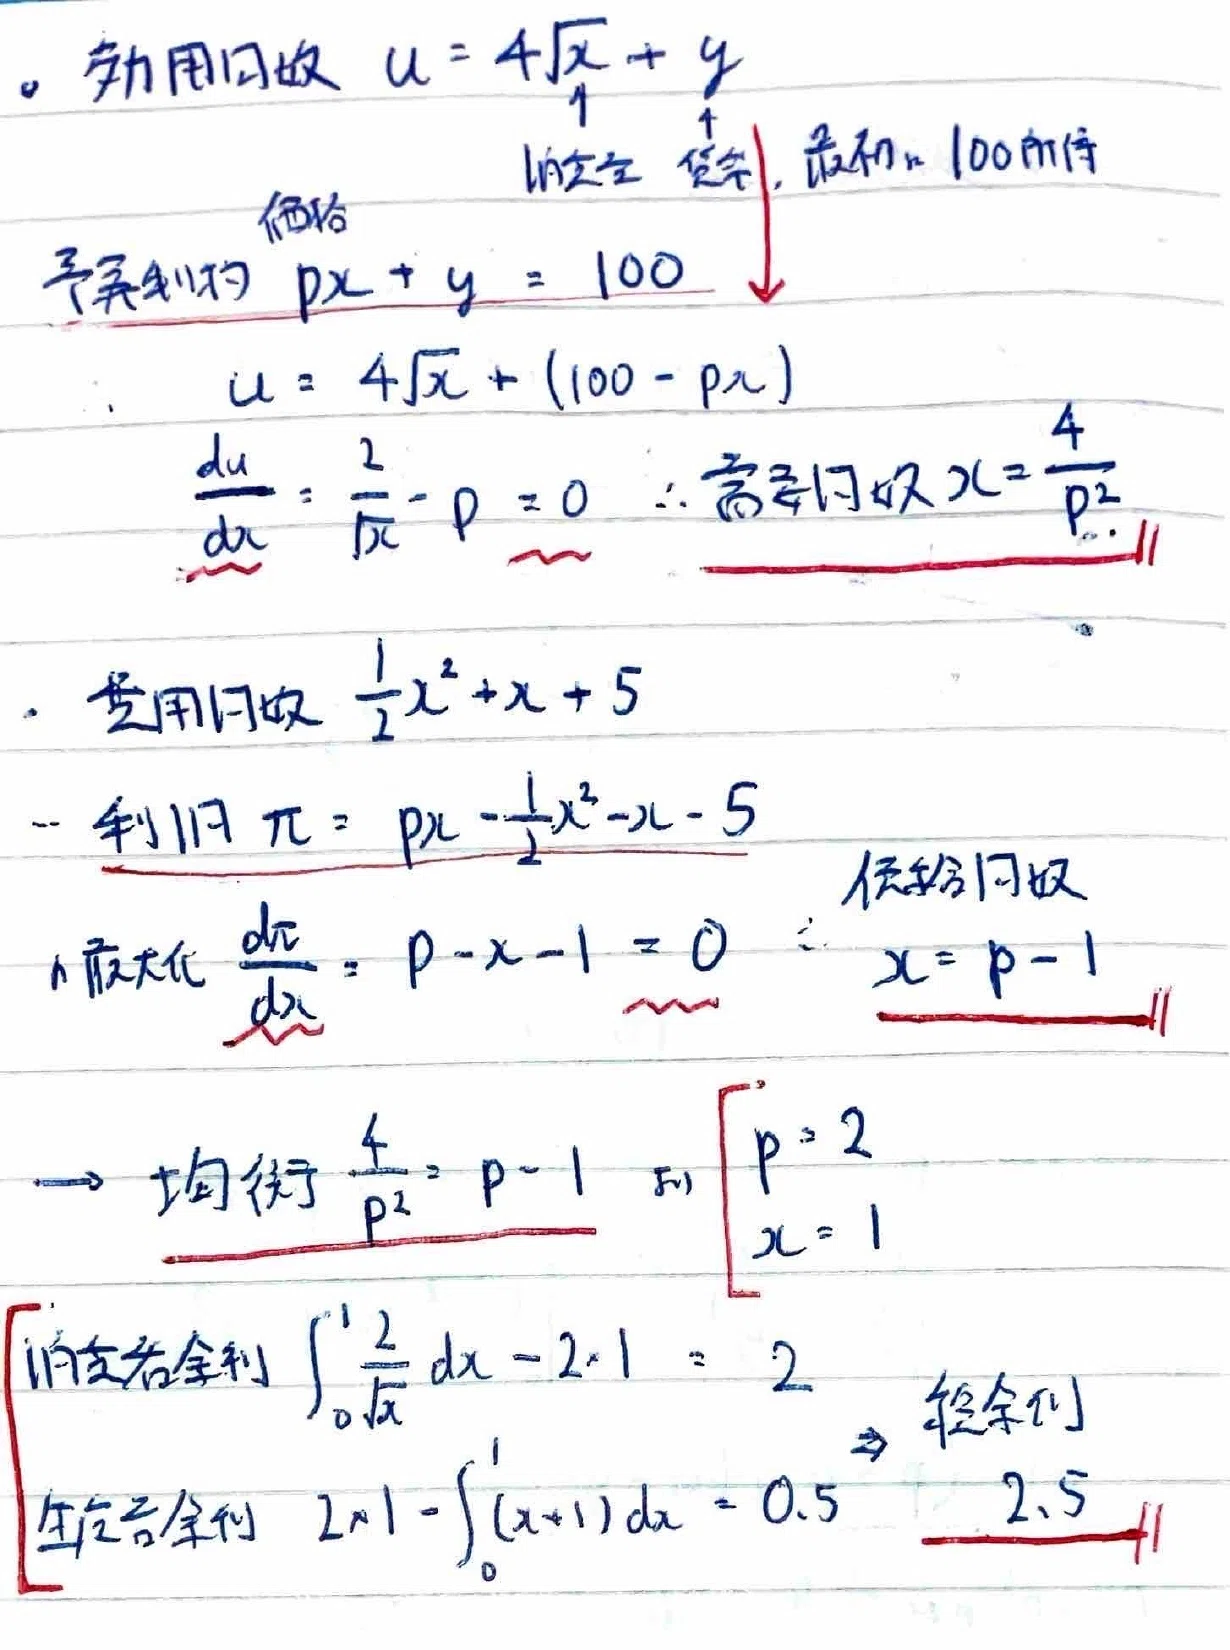 。効用関数 u = 4√x + y
↑ ↑
消費量 貨幣, 最初に100所持
価格
予算制約 px + y = 100
∴ u = 4√x + (100 - px)
du/dx = 2/√x - p = 0 ∴ 需要関数 x = 4/p²
・費用関数 1/2 x² + x + 5
-- 利潤 π = px - 1/2 x² - x - 5
〃最大化 dπ/dx = p - x - 1 = 0 ∴ 供給関数 x = p - 1
→ 均衡 4/p² = p - 1 より p = 2
x = 1
消費者余剰 ∫₀¹ 2/√x dx - 2・1 = 2
生産者余剰 2×1 - ∫₀¹ (x+1) dx = 0.5 ⇒ 総余剰 2.5